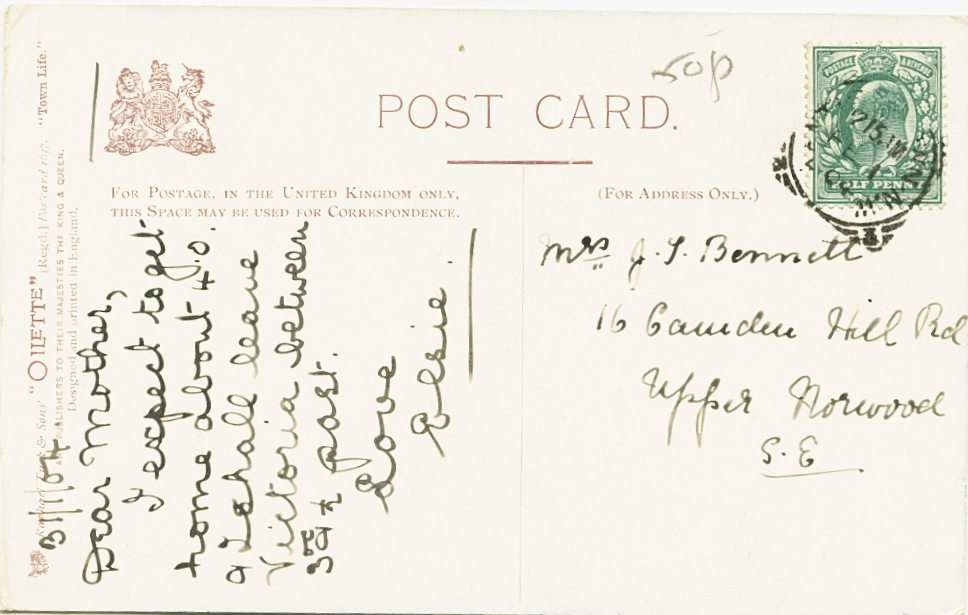 50p
POST CARD.
FOR POSTAGE, IN THE UNITED KINGDOM ONLY,
THIS SPACE MAY BE USED FOR CORRESPONDENCE.
(FOR ADDRESS ONLY.)
POSTAGE & REVENUE
HALF PENNY
Raphael Tuck & Sons' "OILETTE" [Regd.] Postcard 1647. "Town Life."
PUBLISHERS TO THEIR MAJESTIES THE KING & QUEEN.
Designed and printed in England.
3/1/04
Dear Mother,
I expect to get
home about 4.0.
I shall leave
Victoria between
3 & ½ past.
Love
Elsie.
Mrs J. S. Bennett
16 Camden Hill Rd
Upper Norwood
S.E